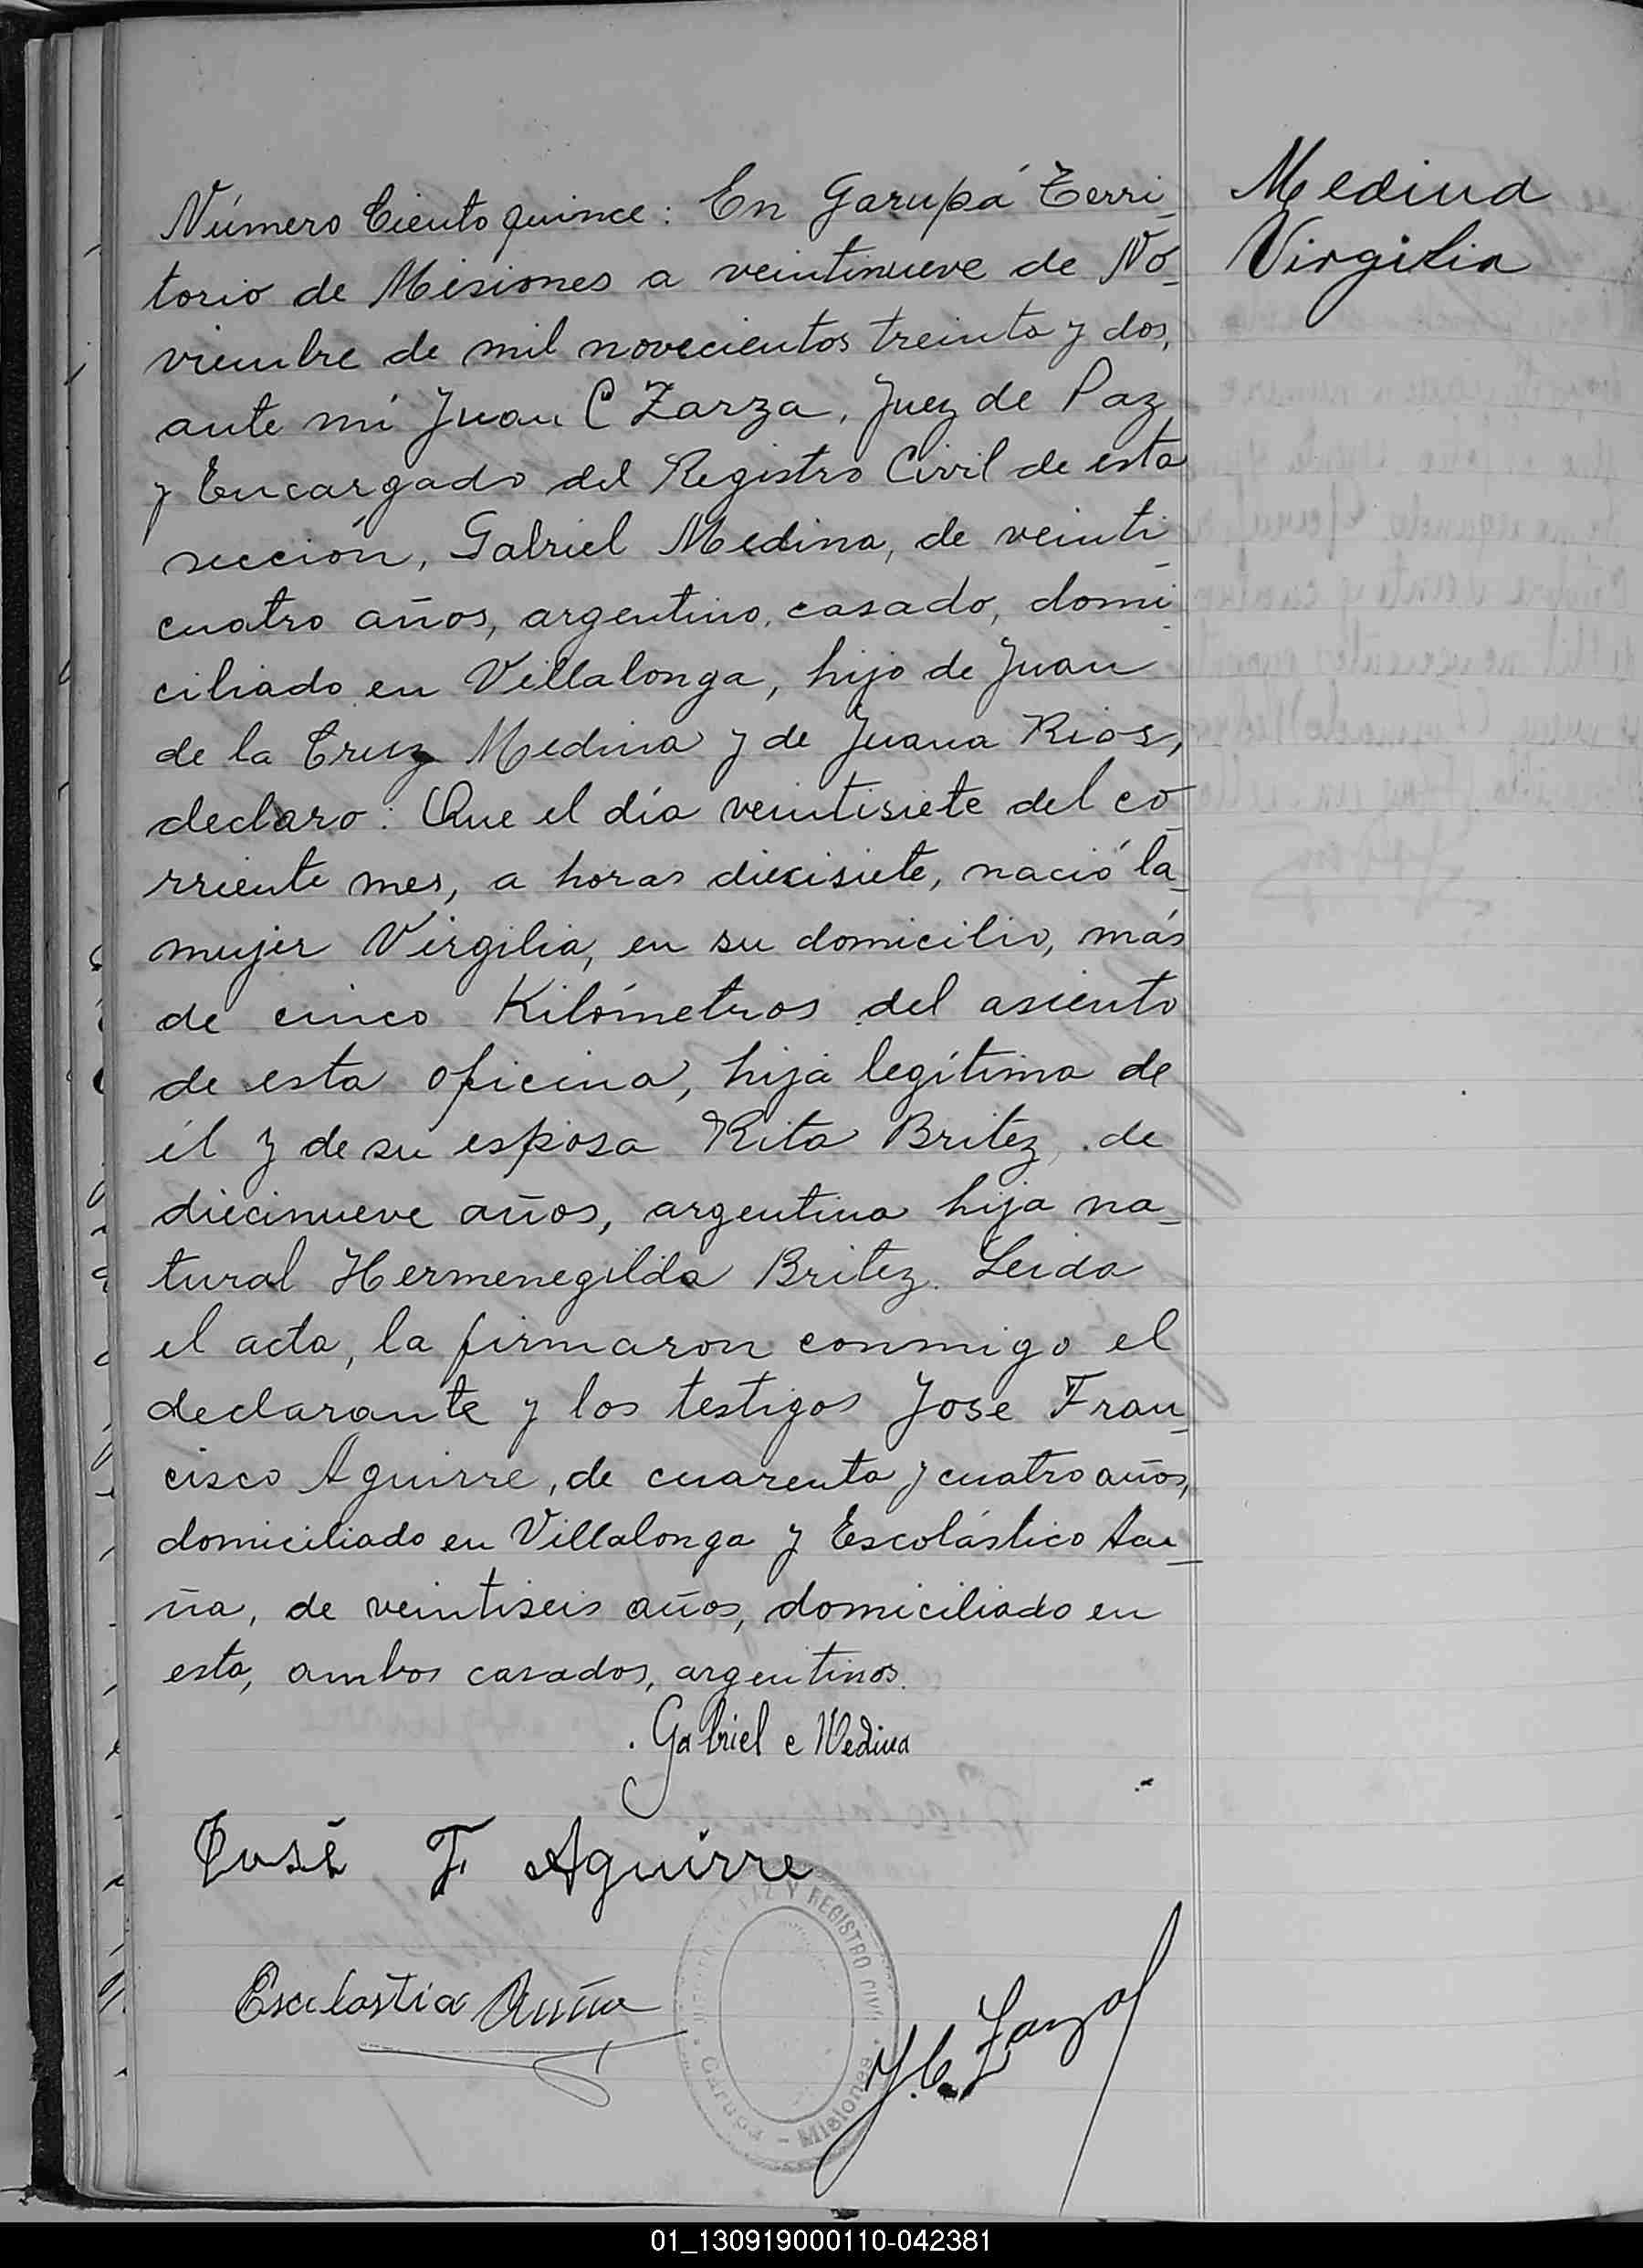 Número Ciento quince: En Garupá Terri_
torio de Misiones a veintinueve de No_
viembre de mil novecientos treinta y dos,
ante mí Juan C Zarza, Juez de Paz
y Encargado del Registro Civil de esta
sección, Gabriel Medina, de veinti_
cuatro años, argentino, casado, domi_
ciliado en Villalonga, hijo de Juan
de la Cruz Medina y de Juana Rios,
declaro: Que el día veintisiete del co_
rriente mes, a horas diecisiete, nació la_
mujer Virgilia, en su domicilio, más
de cinco Kilómetros del asiento
de esta oficina, hija legítima de
él y de su esposa Rita Britez, de
diecinueve años, argentina hija na_
tural Hermenegilda Britez. Leida
el acta, la firmaron conmigo el
declarante y los testigos Jose Fran_
cisco Aguirre, de cuarenta y cuatro años,
domiciliado en Villalonga y Escolástico Acu_
ña, de veintiseis años, domiciliado en
esta, ambos casados, argentinos.
Medina
Virgilia
Gabriel e Medina
José F Aguirre
PAZ Y REGISTRO CIVIL
Garupá - Misiones
J. C. Zarza
01_130919000110-042381